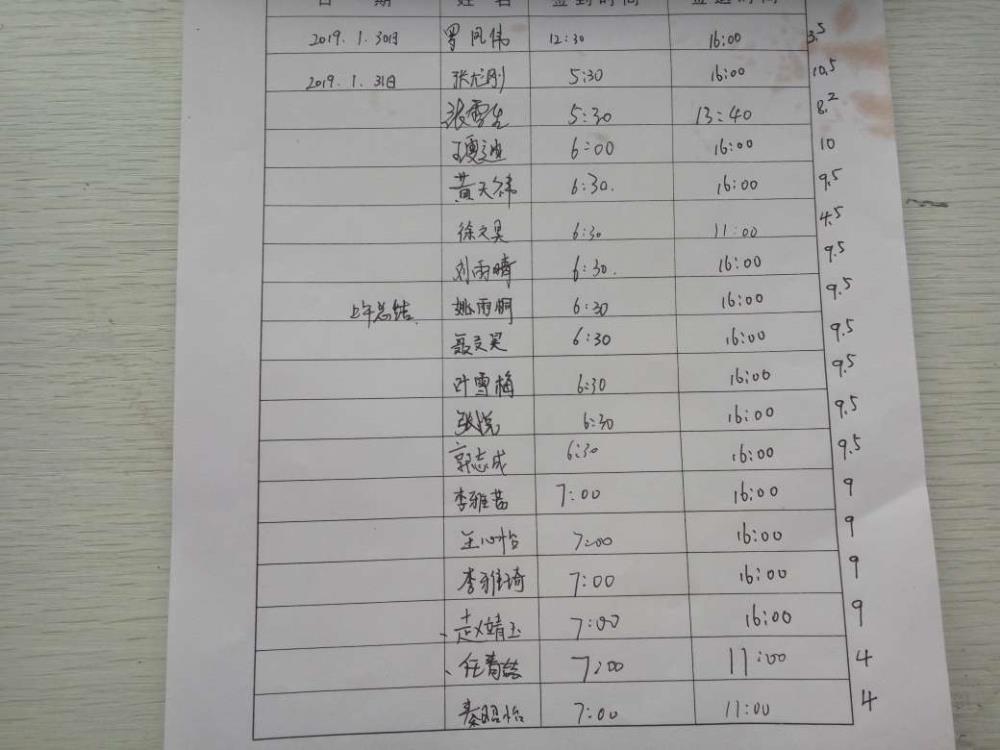 日 期 姓 名 签到时间 签退时间
2019.1.30日 罗凤伟 12:30 16:00 3.5
2019.1.31日 张龙刚 5:30 16:00 10.5
张雪生 5:30 13:40 8.2
6:00 16:00 10
黄天祎 6:30. 16:00 9.5
徐文昊 6:30 11:00 4.5
刘雨晴 6:30. 16:00 9.5
上午总结. 姚雨炯 6:30 16:00 9.5
聂文昊 6:30 16:00 9.5
叶雪梅 6:30 16:00 9.5
张悦 6:30 16:00 9.5
郭志成 6:30 16:00 9.5
李雅茜 7:00 16:00 9
王心怡 7:00 16:00 9
李雅琦 7:00 16:00 9
、赵婧玉 7:00 16:00 9
、任青 7:00 11:00 4
秦昭怡 7:00 11:00 4